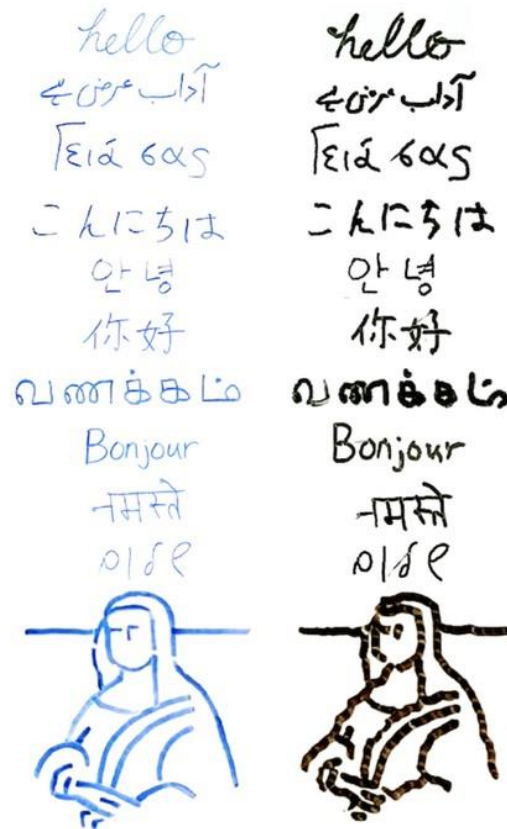 hello
آداب عرض ہے
Γειά σας
こんにちは
안녕
你好
வணக்கம்
Bonjour
नमस्ते
hello
آداب عرض ہے
Γειά σας
こんにちは
안녕
你好
வணக்கம்
Bonjour
नमस्ते